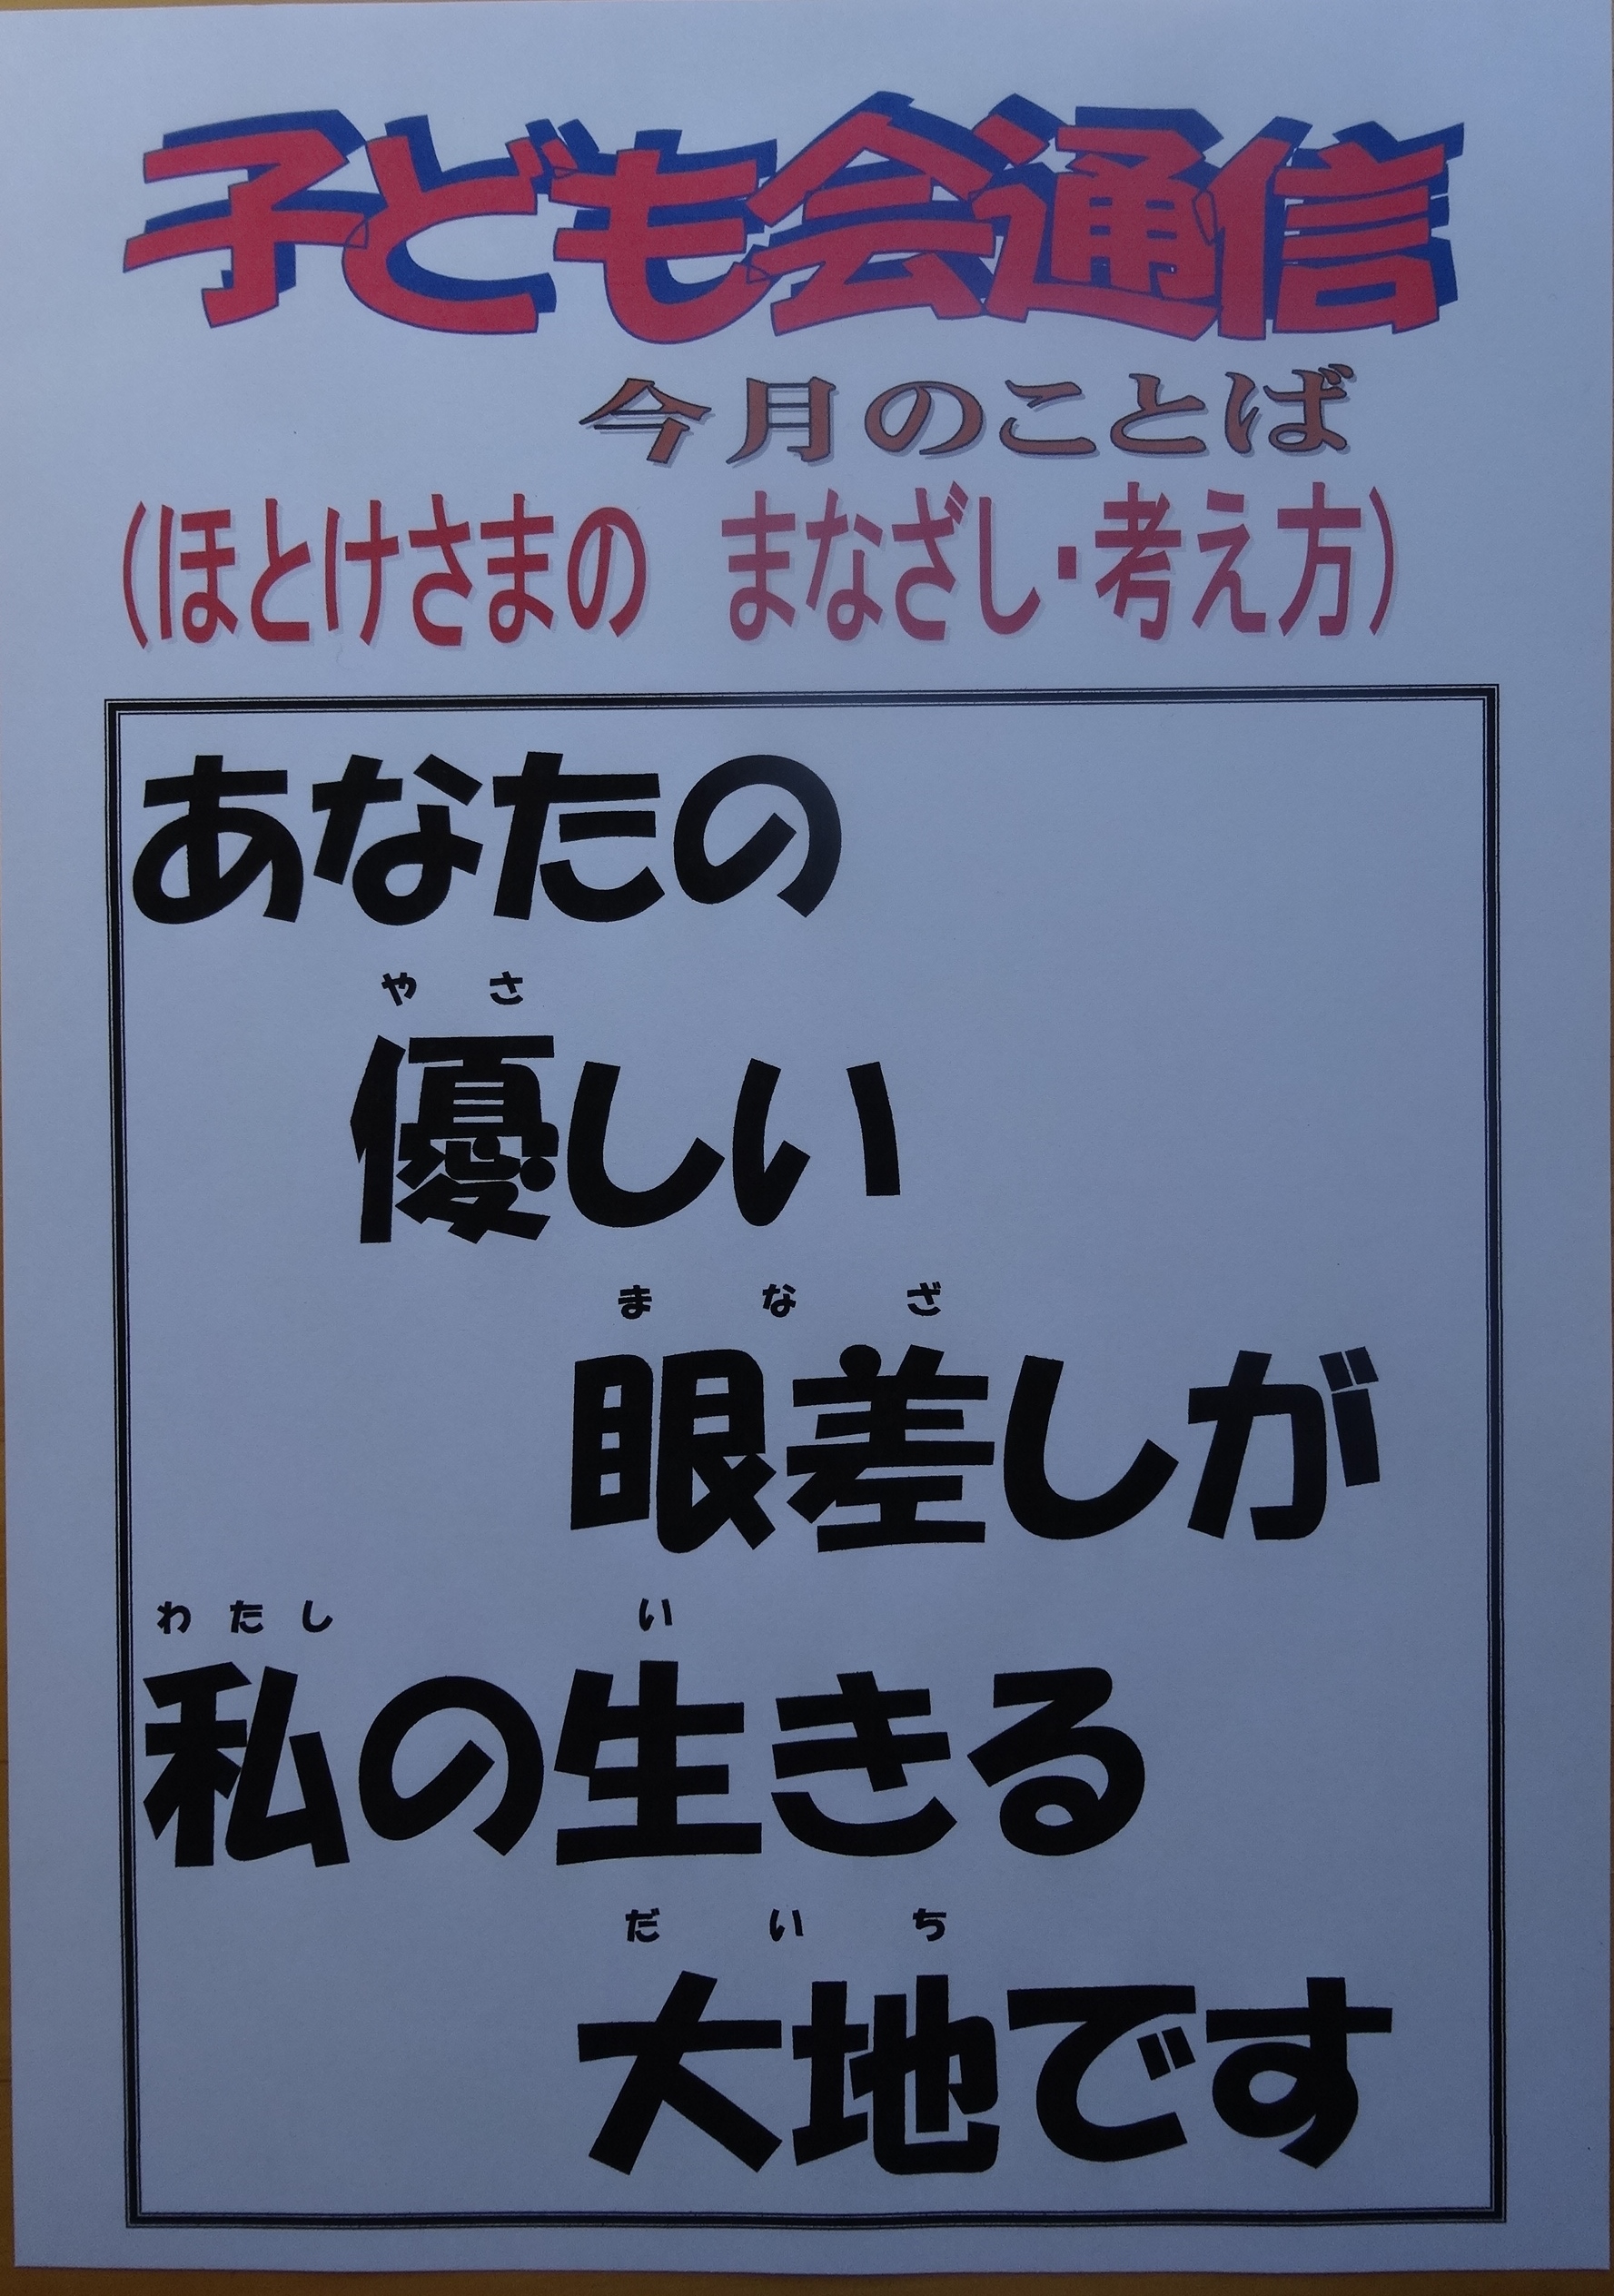 子ども会通信
今月のことば
(ほとけさまの　まなざし・考え方)
あなたの
やさ
優しい
まなざ
眼差しが
わたし　い
私の生きる
だいち
大地です